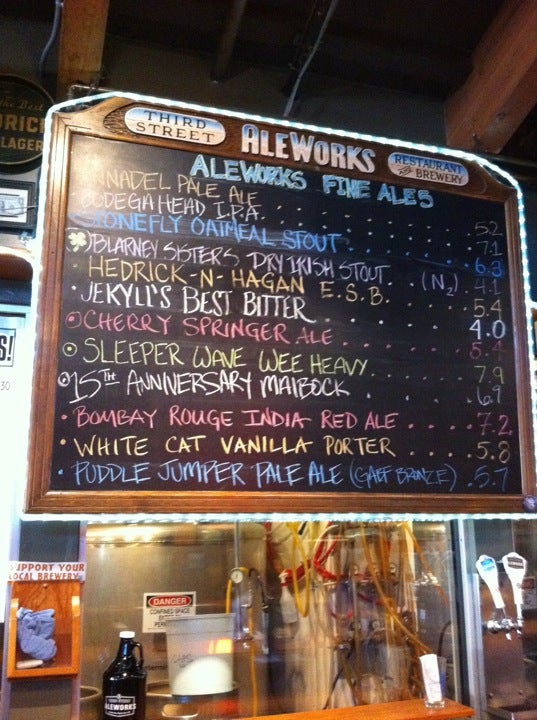 THIRD
STREET
ALEWORKS
RESTAURANT
AND BREWERY
ALEWORKS FINE ALES
ANNADEL PALE ALE . . . . . . . 5.2
BODEGA HEAD I.P.A. . . . . . . 7.1
STONEFLY OATMEAL STOUT . . . . 6.3
BLARNEY SISTERS DRY IRISH STOUT (N2) 4.1
· HEDRICK-N-HAGAN E.S.B. . . . 5.4
· JEKYLL'S BEST BITTER . . . . 4.0
CHERRY SPRINGER ALE . . . . 5.4
SLEEPER WAVE WEE HEAVY . . . 7.9
15TH ANNIVERSARY MAIBOCK . . . 6.9
· BOMBAY ROUGE INDIA RED ALE . . . . 7.2
· WHITE CAT VANILLA PORTER . . . . 5.8
· PUDDLE JUMPER PALE ALE (GABF BRONZE) . 5.7
LAGER
S!
30
SUPPORT YOUR
LOCAL BREWERY
DANGER
CONFINED SPACE
ALEWORKS